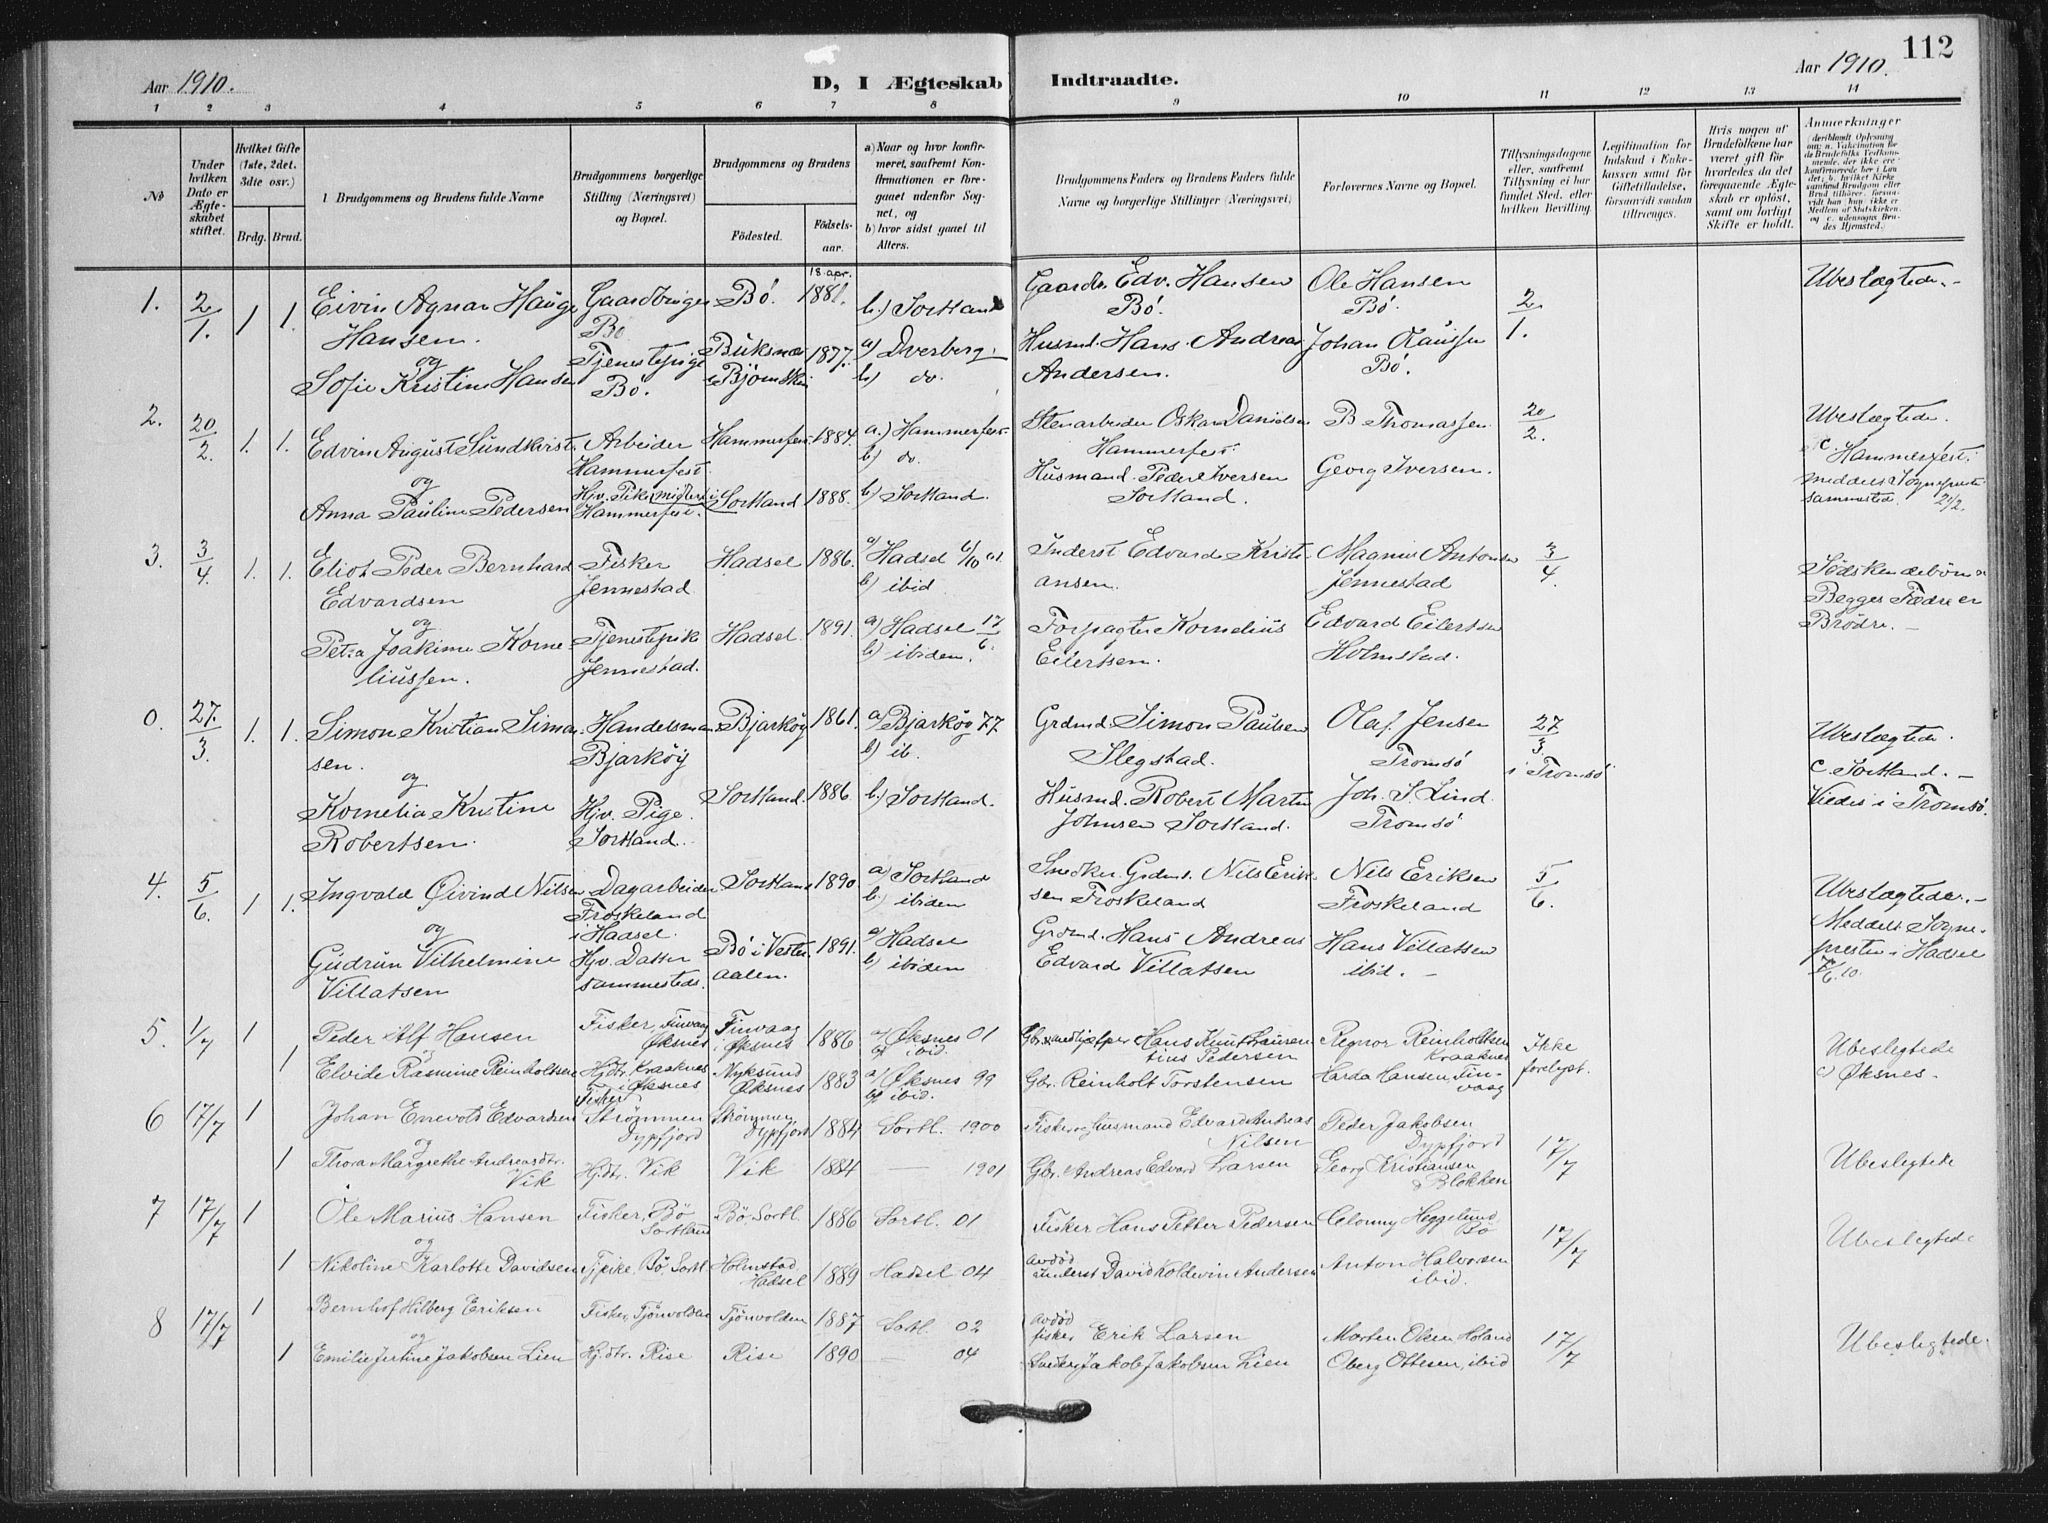 112
Aar 1910.
D, I Ægteskab Indtraadte.
Aar 1910.
1 2 3 4 5 6 7 8 9 10 11 12 13 14
No
Under hvilken Dato er Ægte- skabet stiftet.
Hvilket Gifte (1ste, 2det, 3die osv.)
Brdg. Brud.
Brudgommens og Brudens fulde Navne
Brudgommens borgerlige Stilling (Næringsvei) og Bopæl.
Brudgommens og Brudens
Fødested. Fødsels- aar.
a) Naar og hvor konfir- meret, saafremt Kon- firmationen er fore- gaaet udenfor Sog- net, og
b) hvor sidst gaaet til Alters.
Brudgommens Faders og Brudens Faders fulde Navne og borgerlige Stillinger (Næringsvei)
Forlovernes Navne og Bopæl.
Tillysningsdagene eller, saafremt Tillysning ei har fundet Sted, efter hvilken Bevilling.
Legitimation for Indskud i Enke- kassen samt for Giftetilladelse, forsaavidt saadan tiltrænges.
Hvis nogen af Brudefolkene har været gift før hvorledes da det foregaaende Ægte- skab er opløst, samt om lovligt Skifte er holdt.
Anmerkninger
1. 2/1. 1 1. Eivin Agnar Hauge Hansen. Gaardbruger Bø Bø. 18. apr. 1881. b.) Sortland Gaardbr. Edv. Hansen Bø. Ole Hansen Bø. 2/1. Ubeslægtede. -
og
Sofie Kristine Hansen Tjenestepige Bø. Buksnes i Bjørnskin 1877. a) Dverberg b) do. Husmd. Hans Andreas Andersen. Johan Olaussen Bø.
2. 20/2. 1. 1. Edvin August Sundkvist Arbeider Hammerfest. Hammerfest 1884. a.) Hammerfest b) do. Stenarbeider Oskar Danielsen Hammerfest B Thomassen 20/2. Ubeslægtede.
og
Anna Pauline Pedersen Hjv. Pike, midlert. i Hammerfest. Sortland 1888. b) Sortland. Husmand Peder Iversen Sortland. Georg Iversen. c Hammerfest. meddelt Sognepresten sammesteds. 21/2.
3. 3/4 1. 1. Eliot Peder Bernhard Edvardsen Fisker Jennestad Hadsel 1886. a) Hadsel 6/10 01. b) ibid Inderst Edvard Kristi- ansen. Magnus Antonsen Jennestad 3/4. Sødskendebørn Begges Fædre er Brødre. -
og
Petra Joakime Korne- liussen. Tjenestepik Jennestad. Hadsel. 1891. a) Hadsel 17/6. b) ibiden. Forpagter Kornelius Eilertsen. Edvard Eilertsen Holmstad.
0. 27./3. 1. 1. Simon Kristian Simon- sen. Handelsmand Bjarkøy Bjarkøy 1861. a) Bjarkøy 77 b) ib. Grdmd. Simon Paulsen Slegstad. Olaf Jensen Tromsø 27/3. i Tromsø Ubeslægtede. c. Sortland. - Viedes i Tromsø.
og
Kornelia Kristine Robertsen. Hjv. Pige. Sortland. Sortland. 1886 b.) Sortland. Husmd. Robert Martin Johnsen Sortland. Joh. S. Lind. Tromsø
4. 5/6. 1 1. Ingvald Øivind Nilsen Dagarbeider Froskeland i Hadsel. Sortland 1890 a) Sortland b.) ibiden Snedker. Grdmd. Nils Erik- sen Froskeland Nils Eriksen Froskeland 5/6. Ubeslægtede. - Meddelt Sogne- presten i Hadsel
og
Gudrun Vilhelmine Villatsen Hjv. Datter sammesteds. Bø i Vester- aalen. 1891. a) Hadsel b) ibiden Grdmd. Hans Andreas Edvard Villatsen Hans Villatsen ibid. -
5. 1/7 1 Peder Alf Hansen Fisker, Finvaag Øksnes Finvaag i Øksnes 1886 a) Øksnes 01 b) ibid. Hans Knut Lauren- tius Pedersen Regnor Reinholtsen Kraaknes Ikke forelyst. Ubeslegtede c) Øksnes.
og
1 Elvide Rasmine Reinholtsen Hjdtr. Kraaknes i Øksnes Nyksund Øksnes 1883 a) Øksnes 99 b) ibid. Gbr. Reinholt Torstensen Harda Hansen, Fin- vaag
6 17/7 1 Johan Enevold Edvardsen Fisker Strømmen Dypfjord Strømmen Dypfjord 1884 Sortl. 1900 Fisker og Husmand Edvard Andreas Nilsen Peder Jakobsen Dypfjord 17/7 Ubeslegtede
og
1 Thora Margrethe Andreasdtr. Vik Hjdtr. Vik Vik 1884 — 1901 Gbr. Andreas Edvard Larsen Georg Kristiansen Blokken
7 17/7 1 Ole Marius Hansen Fisker, Bø Sortland Bø Sortl. 1886 Sortl. 01 Fisker Hans Petter Pedersen Conny Heggelund Bø 17/7 Ubeslegtede
og
1 Nikoline Karlotte Davidsen Tjpike, Bø, Sortl Holmstad Hadsel 1889 Hadsel 04 avdød inderst David Koldevin Andersen Anton Halvorsen ibid.
8 17/7 1 Bernhof Hilberg Eriksen Fisker, Tjønvolden Tjønvolden 1887 Sortl. 02 avdød fisker Erik Larsen Morten Olsen Holand 17/7 Ubeslegtede.
og
1 Emilie Jertine Jakobsen Lien Hjdtr. Rise Rise 1890 — 04 Jakob Jakobsen Lien Oberg Ottesen, ibid